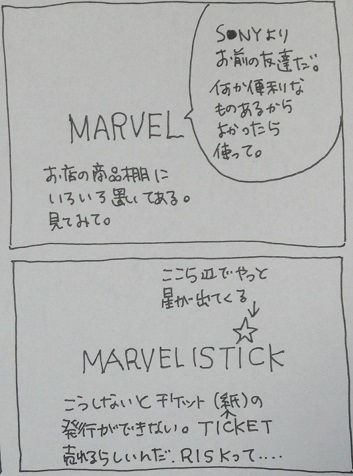 S●NYより
お前の友達だ。
何か便利な
ものあるから
よかったら
使って。
MARVEL
お店の商品棚に
いろいろ置いてある。
見てみて。
ここら辺でやっと
星が出てくる
☆
MARVELISTICK
こうしないとチケット(紙)の
発行ができない。TICKET
売れるらしいんだ。RISKって....